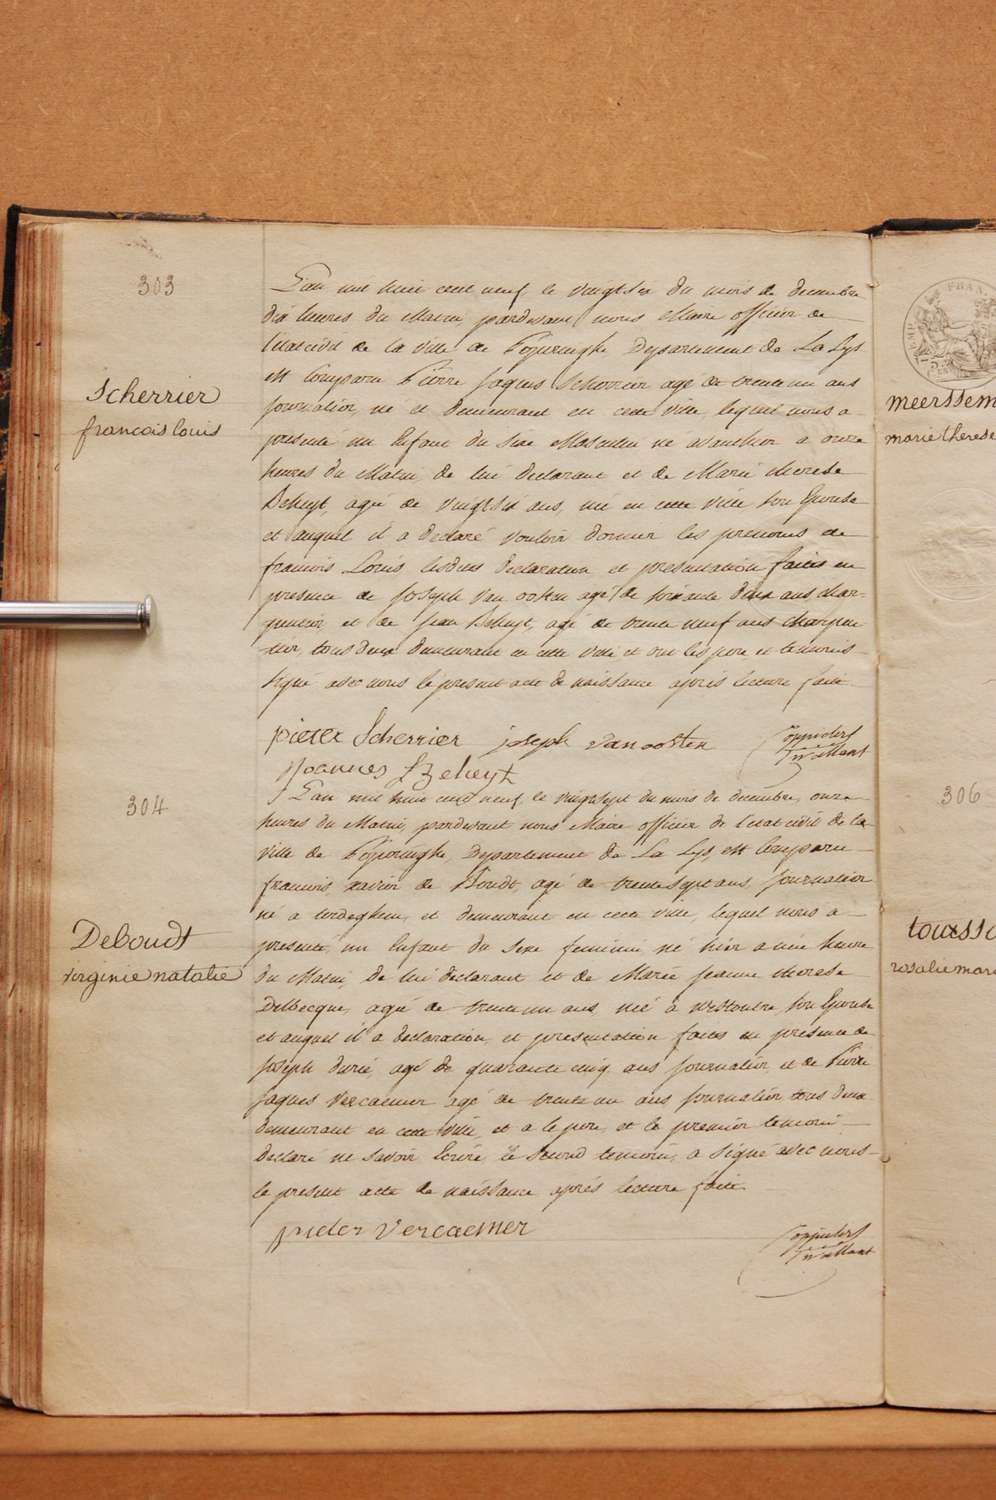 303
Scherrier
francois louis
L'an mil huit cent neuf le vingtsix du mois de decembre
dix heures du Matin, pardevant nous Maire officier de
l'etat civil de la ville de Poperinghe Departement de La Lys
est Comparu Pierre Jaques Scherrier agé de trente un ans
Journalier, né et demeurant en cette ville, lequel nous a
presenté un Enfant du Sexe Masculin né avanthier a onze
heures du Matin, de lui declarant et de Marie therese
Beheyt, agé de vingtsix ans, née en cette ville son Epouse
et auquel il a declaré vouloir donner les prenoms de
francois Louis lesdites declaration et presentation faites en
presence de Joseph Van oosten agé de soixante deux ans char-
pentier et de Jean Beheyt, agé de trente neuf ans charpen
tier, tous deux demeurant en cette ville et ont les pere et temoins
signé avec nous le present acte de naissance après lecture faite
pieter Scherrier joseph van oosten
Joannes Beheyt
304
Deboudt
virginie natalie
L'an mil huit cent neuf, le vingtsept du mois de decembre, onze
heures du Matin, pardevant nous Maire officier de l'etat civil de la
ville de Poperinghe, Departement de La Lys, est Comparu
francois xavier de Boudt agé de trentesept ans, Journalier
né a et demeurant en cette ville, lequel nous a
presenté un Enfant du Sexe feminin né hier a une heure
du Matin, de lui declarant et de Marie Jeanne therese
Delbecque, agé de trente un ans, née à Westoutre, son Epouse
et auquel il a declaration, et presentation faites en présence de
Joseph durié, agé de quarante cinq ans Journalier et de Pierre
Jaques Vercaemer agé de trente un ans Journalier tous deux
demeurant en cette ville, et a le pere et le premier temoin
declaré ne Savoir Ecrire, le Second temoin, a Signé avec nous
le present acte de naissance après lecture faite.
pieter vercaemer
meerssem
marie therese
306
tousso
rosalie mari